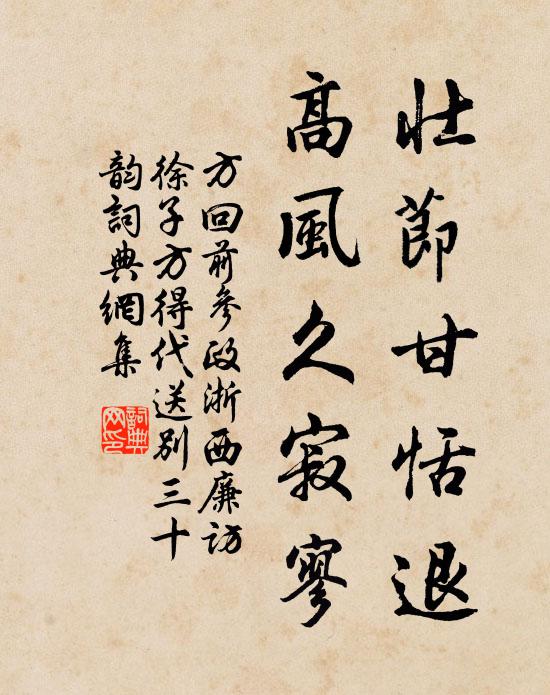 壮節甘恬退
高風久寂寥
方回前參政浙西廉訪
徐子方得代送別三十
韵詞典網集
詞典網印